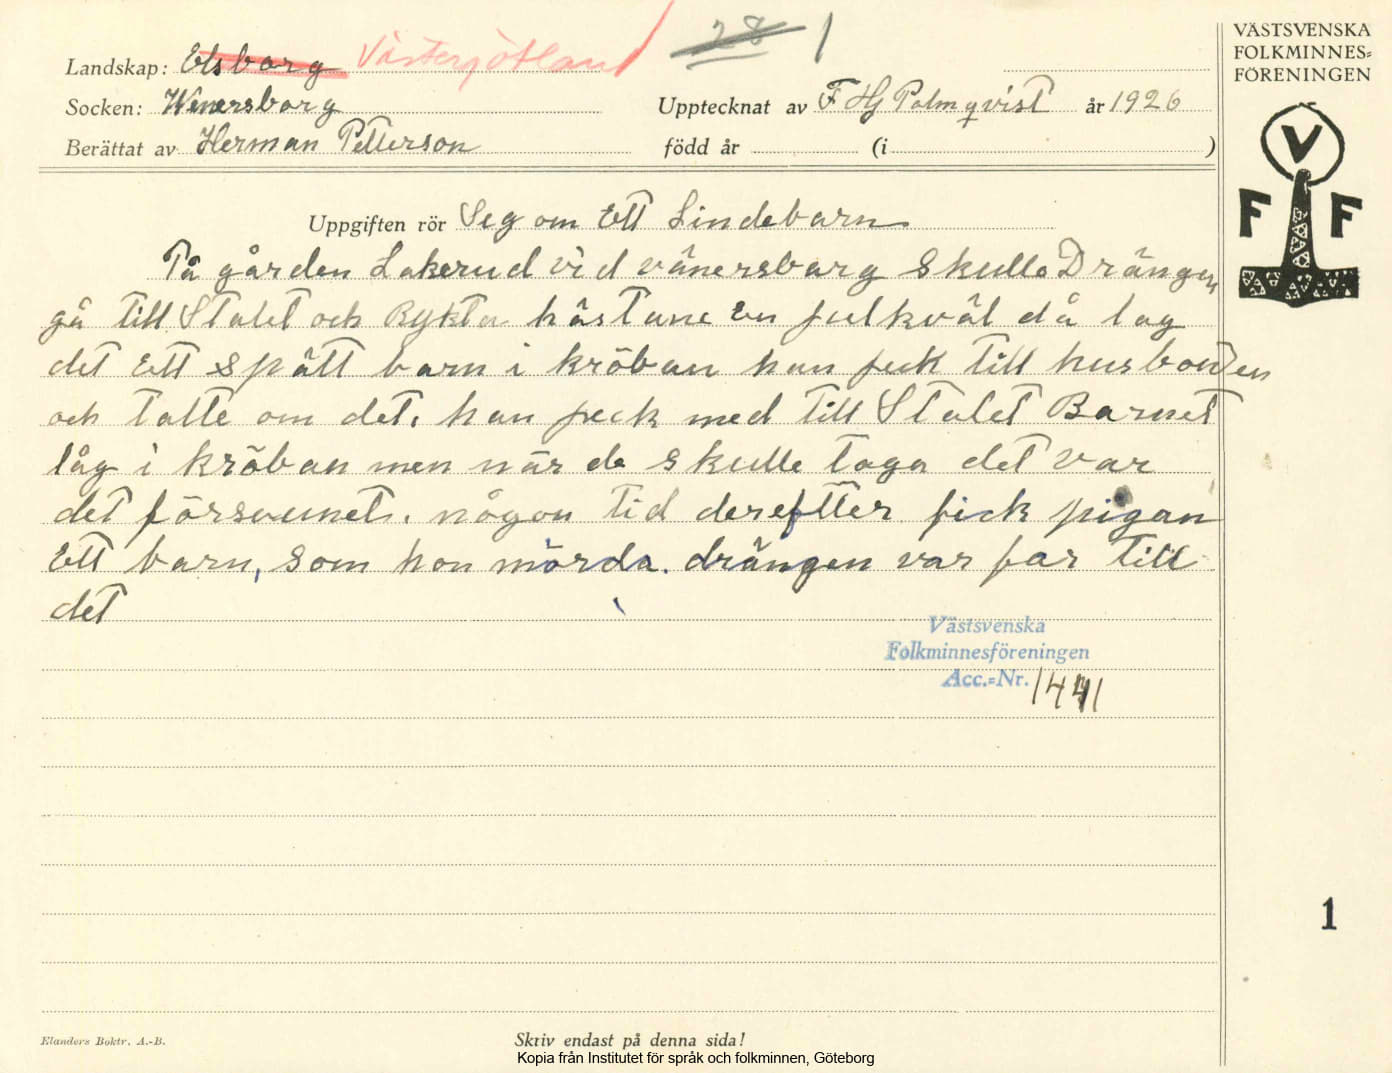 28 1
Landskap: Elsborg Västergötland
Socken: Wenersborg
Upptecknat av F Hj Palmqvist år 1926
Berättat av Herman Petterson
född år (i )
VÄSTSVENSKA
FOLKMINNES=
FÖRENINGEN
V
F F
Uppgiften rör Seg om Ett Lindebarn
På gården Lakerud vid vänersborg skulle Drängen
gå till Stalet och Rykta hästane En julkväl då lag
det Ett spätt barn i kröban han jick till husbonden
och talte om det. han jeck med till Stalet Barnet
låg i kröban men när de skulle taga det var
det försvunet. någon tid derefter fick pigan
Ett barn, som hon mörda. drängen var far till
det
Västsvenska
Folkminnesföreningen
Acc.=Nr. 1441
1
Elanders Boktr. A.-B.
Skriv endast på denna sida!
Kopia från Institutet för språk och folkminnen, Göteborg